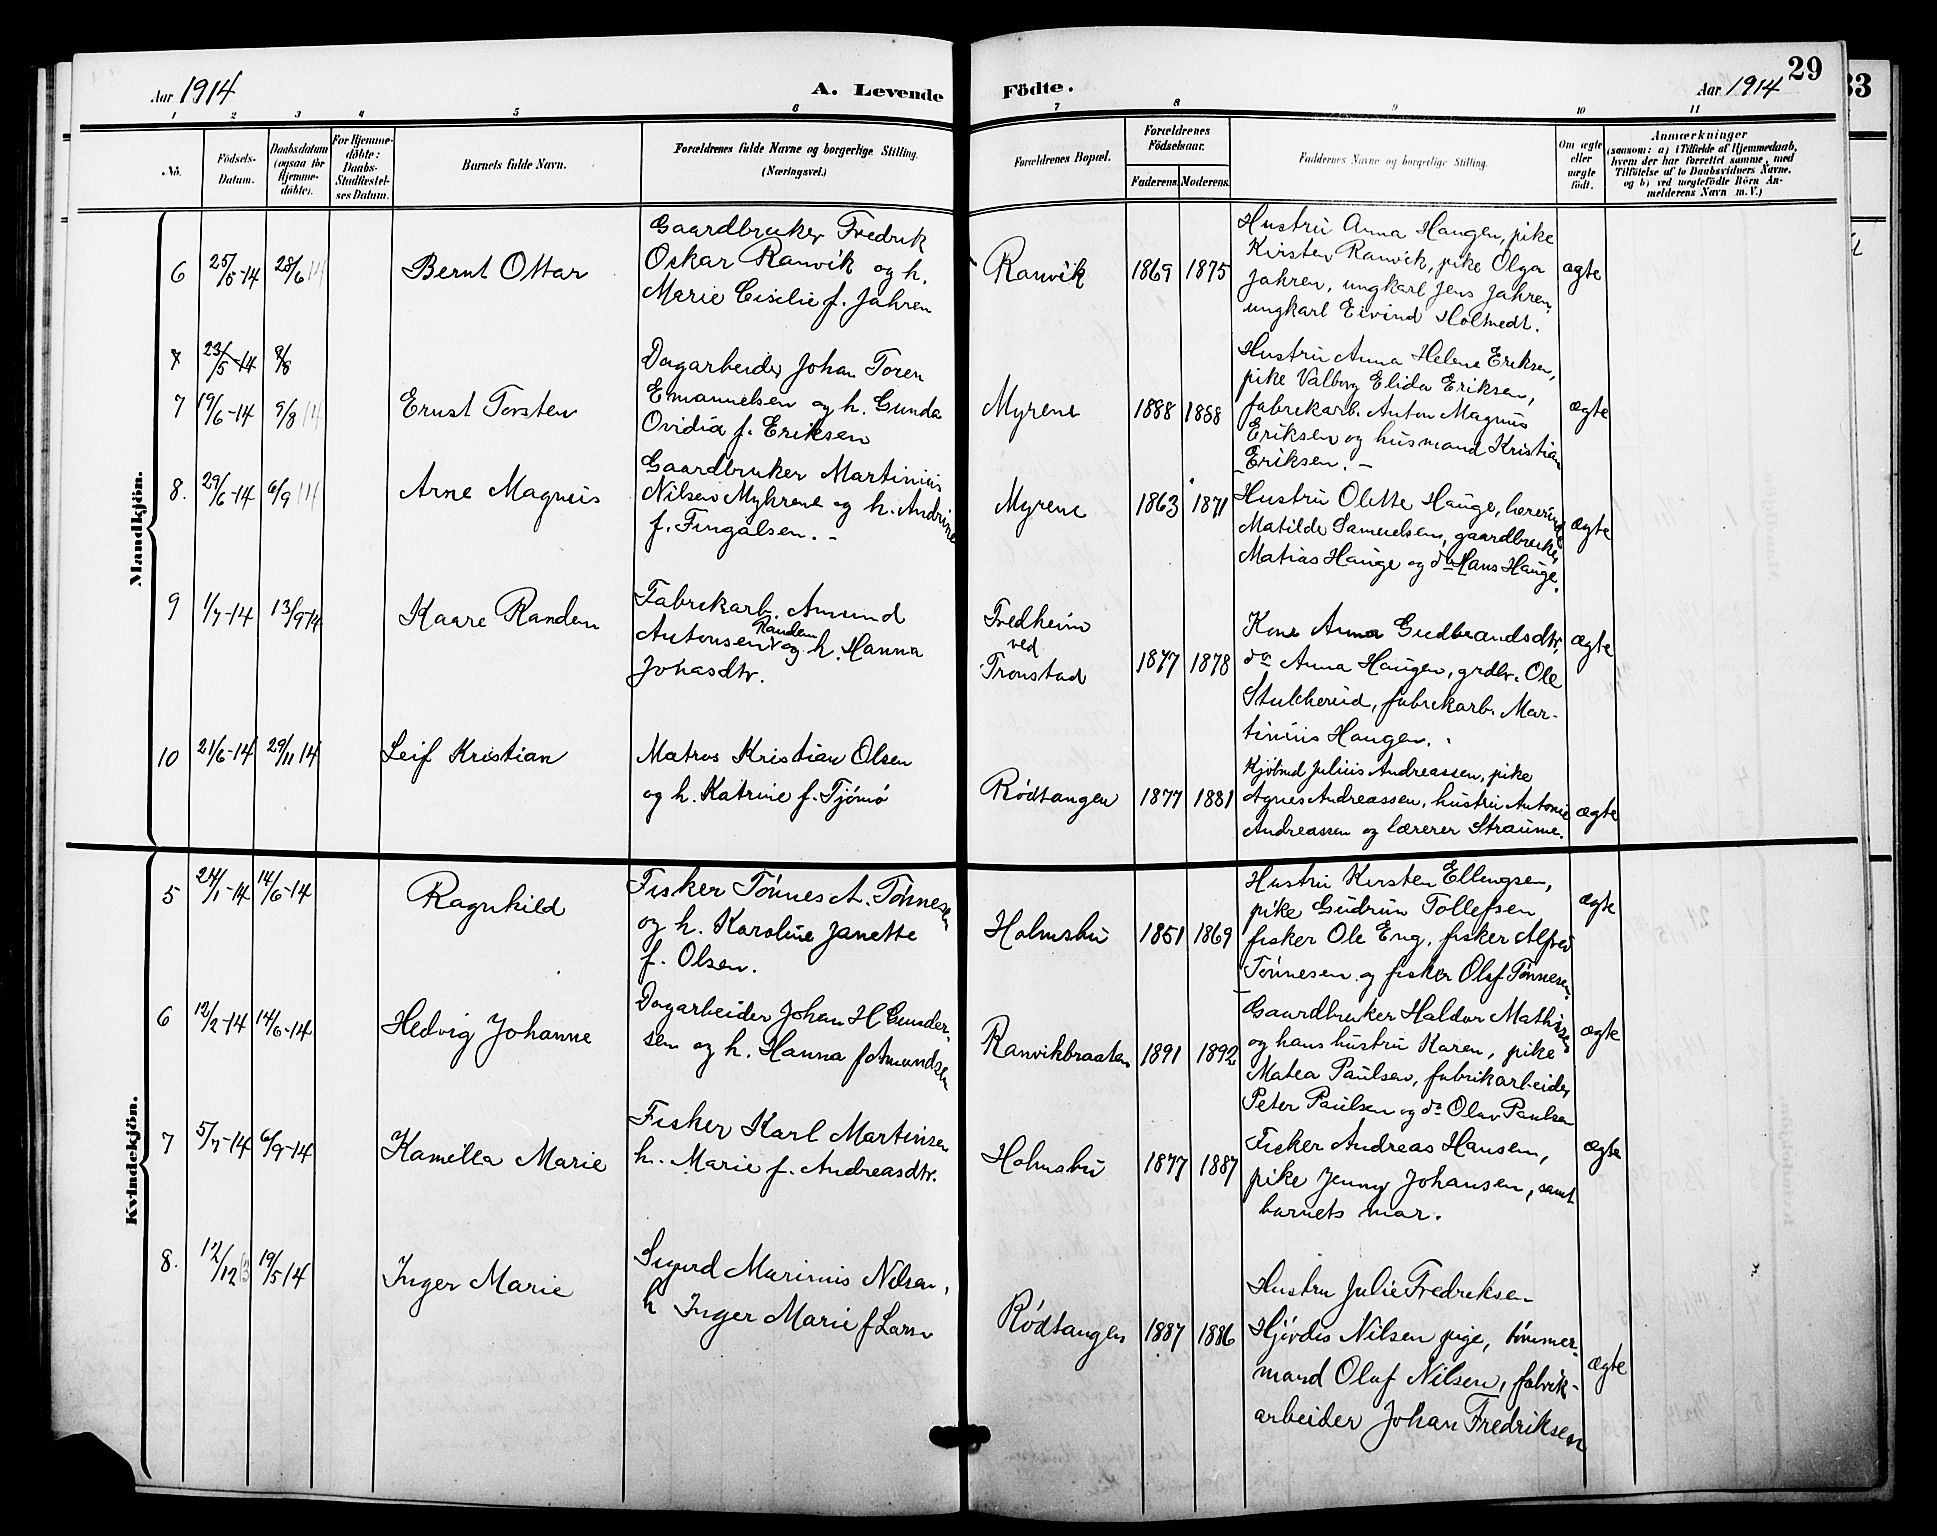 Aar 1914
A. Levende Födte.
29
Aar 1914
33
1 2 3 4 5 6 7 8 9 10 11
No.
Födsels-Datum.
Daabsdatum (ogsaa for Hjemmedöbte).
For Hjemmedöbte: Daabs-Stadfæstelses Datum.
Barnets fulde Navn.
Forældrenes fulde Navne og borgerlige Stilling.
(Næringsvei.)
Forældrenes Bopæl.
Forældrenes Födselsaar.
Faderens. Moderens.
Faddernes Navne og borgerlige Stilling.
Om ægte eller uægte födt.
Anmærkninger
(saasom: a) i Tilfælde af Hjemmedaab,
hvem der har forrettet samme, med
Tilföielse af to Daabsvidners Navne.
og b) ved uegtefödte Börn An-
melderens Navn m. V.)
Mandkjön.
6 25/5-14 28/6 14 Bernt Ottar
Gaardbruker Fredrik
Oskar Ranvik og h.
Marie Cisilie f. Jahren
Ranvik 1869 1875
Hustru Anna Haugen, pike
Kirsten Ranvik, pike Olga
Jahren, ungkarl Jens Jahren,
ungkarl Eivind Holtnedt.
ægte
7 23/5-14 9/8
7 19/6-14 9/8 14 Ernst Torsten
Dagarbeider Johan Toren
Emanuelsen og h. Gunda
Ovidia f. Eriksen
Myrene 1888 1888
Hustru Anna Helene Eriksen,
pike Valborg Elida Eriksen,
fabrikarb. Anton Magnus
Eriksen og husmand Kristian
Eriksen. -
ægte
8. 29/6-14 6/9 14 Arne Magnus
Gaardbruker Martinius
Nilsen Myhrene og h. Andrine
f. Fingalsen. -
Myrene 1863 1871
Hustru Olette Hauge, lærerinde
Matilde Samuelsen, gaardbruker
Matias Hauge og do Hans Hauge.
ægte
9 1/7-14 13/9-14 Kaare Randem
Fabrikarb. Amund
Antonsen Randem og h. Hanna
Johasdtr.
Fredheim
ved
Tronstad
1877 1878
Kone Anna Gudbrandsdtr,
do Anna Haugen, grdbr. Ole
Stulkerud, fabrikarb. Mar-
tinius Haugen.
ægte
10 21/6-14 29/11 14 Leif Kristian
Matros Kristian Olsen
og h. Katrine f. Tjömö
Rödtangen 1877 1881
Kjöbmd Julius Andreassen, pike
Agnes Andreassen, hustru Antonie
Andreassen og lærerer Straume.
ægte
Kvindekjön.
5 24/1-14 14/6-14 Ragnhild
Fisker Tönnes A. Tönnesen
og h. Karoline Janette
f. Olsen.
Holmsbu 1851 1869
Hustru Kirsten Ellingsen,
pike Gudrun Tollefsen
fisker Ole Eng, fisker Alfred
Tönnesen og fisker Olaf Tönnesen.
ægte
6 12/2-14 14/6-14 Hedvig Johanne
Dagarbeider Johan H Gunder-
sen og h. Hanna f Amundsen
Ranvikbraaten 1891 1892
Gaardbruker Haldor Mathisen
og hans hustru Karen, pike
Matea Paulsen, fabrikarbeider
Peter Paulsen og do Olav Paulsen
ægte
7 5/7-14 6/9-14 Kamilla Marie
Fisker Karl Martinsen
h. Marie f. Andreasdtr.
Holmsbu 1877 1887
Fisker Andreas Hansen,
pike Jenny Johansen, samt
barnets mor.
ægte
8. 12/12 13 19/5 14 Inger Marie
Sigurd Marinius Nilsen,
h Inger Marie f Larsen
Rödtangen 1887 1886
Hustru Julie Fredriksen
Hjördis Nilsen pige, tömmer-
mand Olaf Nilsen, fabrik-
arbeider Johan Fredriksen
ægte